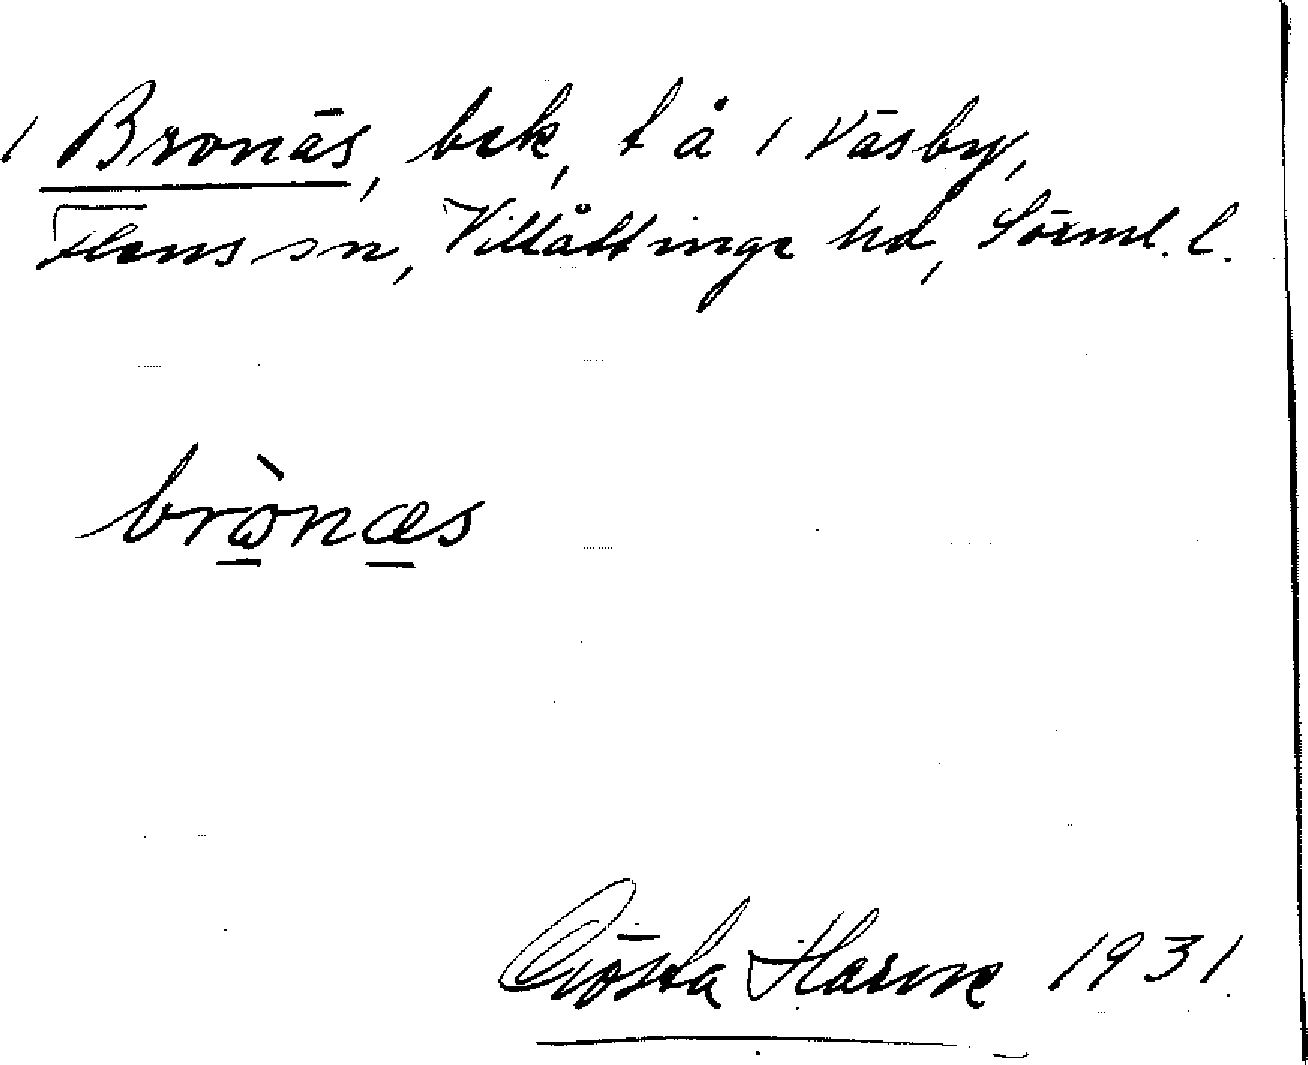 / Bronäs, bek, f å / Väsby,
Flens sn, Villåttinge hd, Sörml. l.
brònæs
Gösta Harne 1931